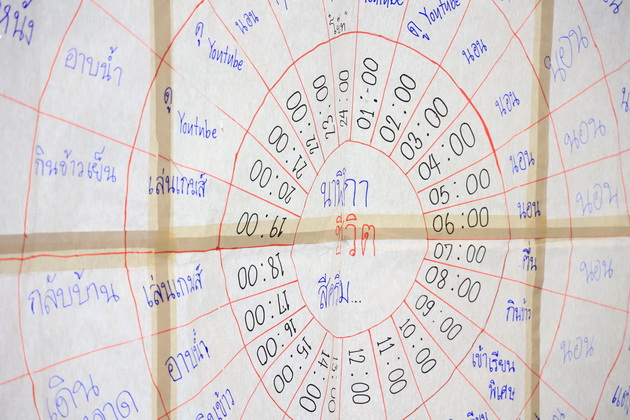 นาฬิกา
ชีวิต
01:00
02:00
03:00
04:00
05:00
06:00
07:00
08:00
09:00
10:00
11:00
12:00
13:00
14:00
15:00
16:00
17:00
18:00
19:00
20:00
21:00
22:00
23:00
24:00
ดู Youtube
นอน
นอน
นอน
นอน
ตื่น
กินข้าว
เข้าเรียน
พิเศษ
อาบน้ำ
เล่นเกมส์
เล่นเกมส์
ดู
Youtube
ดู
Youtube
นอน
อาบน้ำ
กินข้าวเย็น
กลับบ้าน
เดิน
นอน
นอน
นอน
นอน
นอน